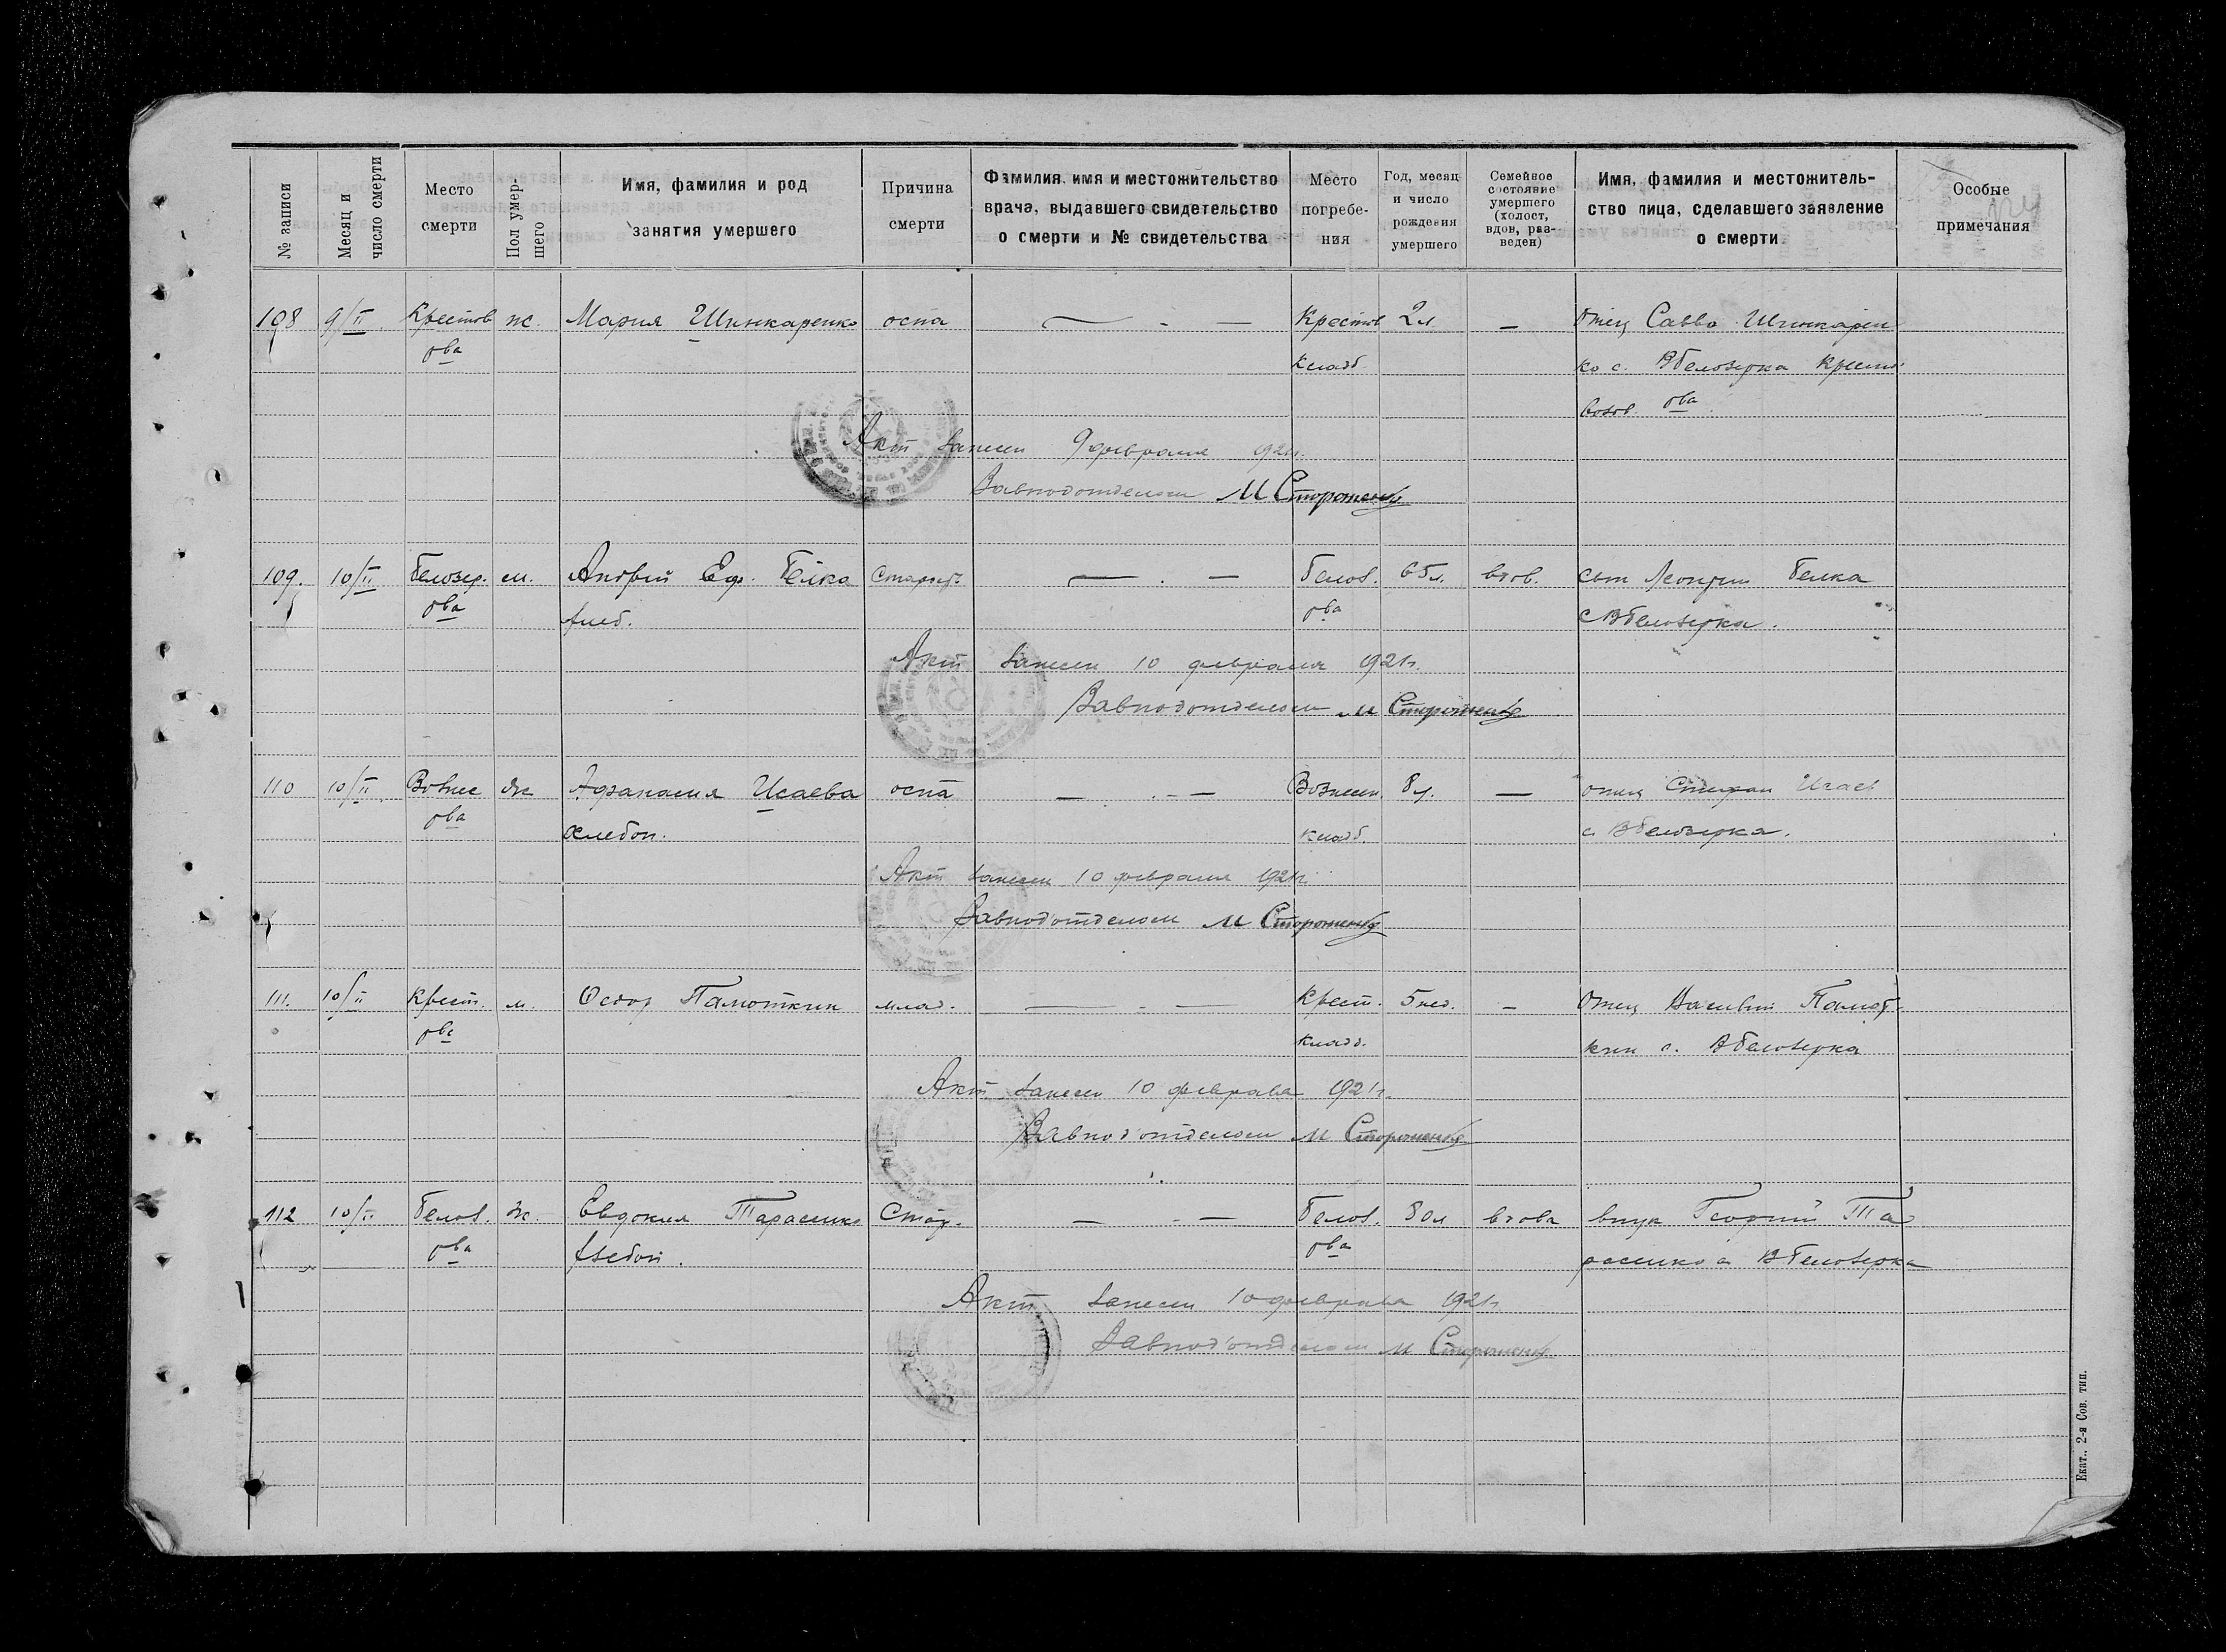 № записи
Месяц и число смерти
Место смерти
Пол умершего
Имя, фамилия и род занятия умершего
Причина смерти
Фамилия, имя и местожительство врача, выдавшего свидетельство о смерти и № свидетельства
Место погребения
Год, месяц и число рождения умершего
Семейное состояние умершего (холост, вдов, разведен)
Имя, фамилия и местожительство лица, сделавшего заявление о смерти
Особые примечания
108 9/II Крестов ж. Мария Шинкаренко оспа — - — Крестов 2 л. — Отец Савва Шинкарен
ова кладб. ко с. ВБелозерка Крестов
ова
Акт занесен 9 февраля 921 г.
Завподотделом М Стороженко
109. 10/II Белозер. м. Андрей Еф. Белка Старост. — . — Белоз. 65 л. вдов. сын Белка
ова хлеб. ова с ВБелозерка.
Акт занесен 10 февраля 1921 г.
Завподотделом М Стороженко
110 10/II Вознес ж Афанасия Исаева оспа — . - — Вознесен. 8 — отец Степан Исаев
ова хлебоп. кладб. с. ВБелозерка.
Акт занесен 10 февраля 1921 г.
Завподотделом М Стороженко
111. 10/II Крест. м. Федор Памоткин млад. — - — Крест. 5 нед. — Отец Василий Памот-
ова кладб. кин с. ВБелозерка
Акт занесен 10 февраля 1921 г.
Завподотделом М Стороженко
112 10/II Белоз. ж. Евдокия Тарасенко Стар. — - — Белоз. 80 л вдова внук Георгий Та
ова хлебоп. ова расенко с ВБелозерка
Акт занесен 10 февраля 1921 г.
Завподотделом М Стороженко
Екат., 2-я Сов. тип.